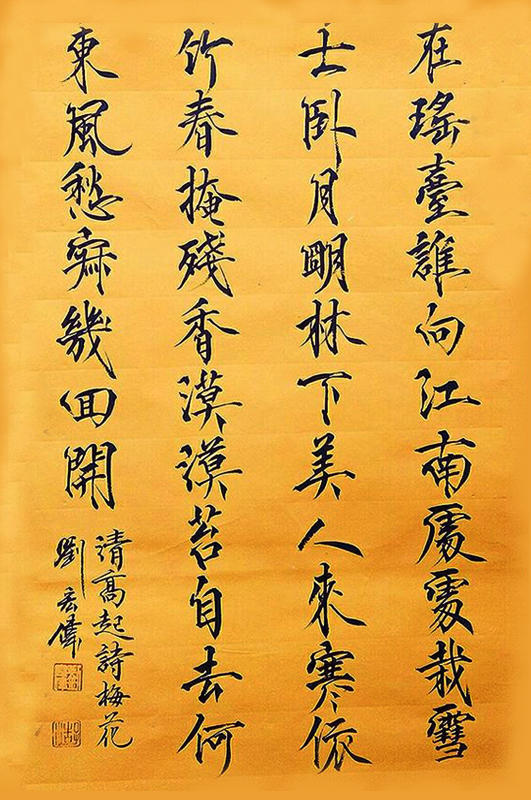 在瑤臺誰向江南處處栽雪
士卧月明林下美人來寒依
竹春掩殘香漠漠苔自去何
東風愁寂幾回開
清高起詩梅花
劉宏偉